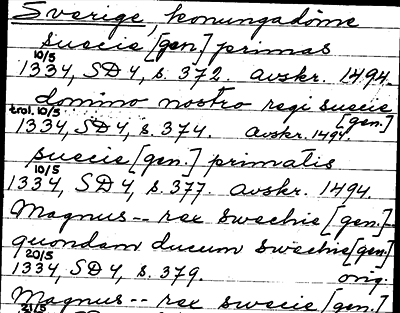 Sverige, konungadöme
suecie [gen] primas
10/5
1334, SD 4, s. 372. avskr. 1494.
domino nostro regi suecie
trol. 10/5 [gen.]
1334, SD 4, s. 374. avskr. 1494.
suecie [gen.] primatis
10/5
1334, SD 4, s. 377. avskr. 1494.
Magnus -- rex swechie [gen.]-
quondam ducum swechie [gen]
20/5
1334, SD 4, s. 379. orig.
Magnus -- rex swecie [gen.]
21/5